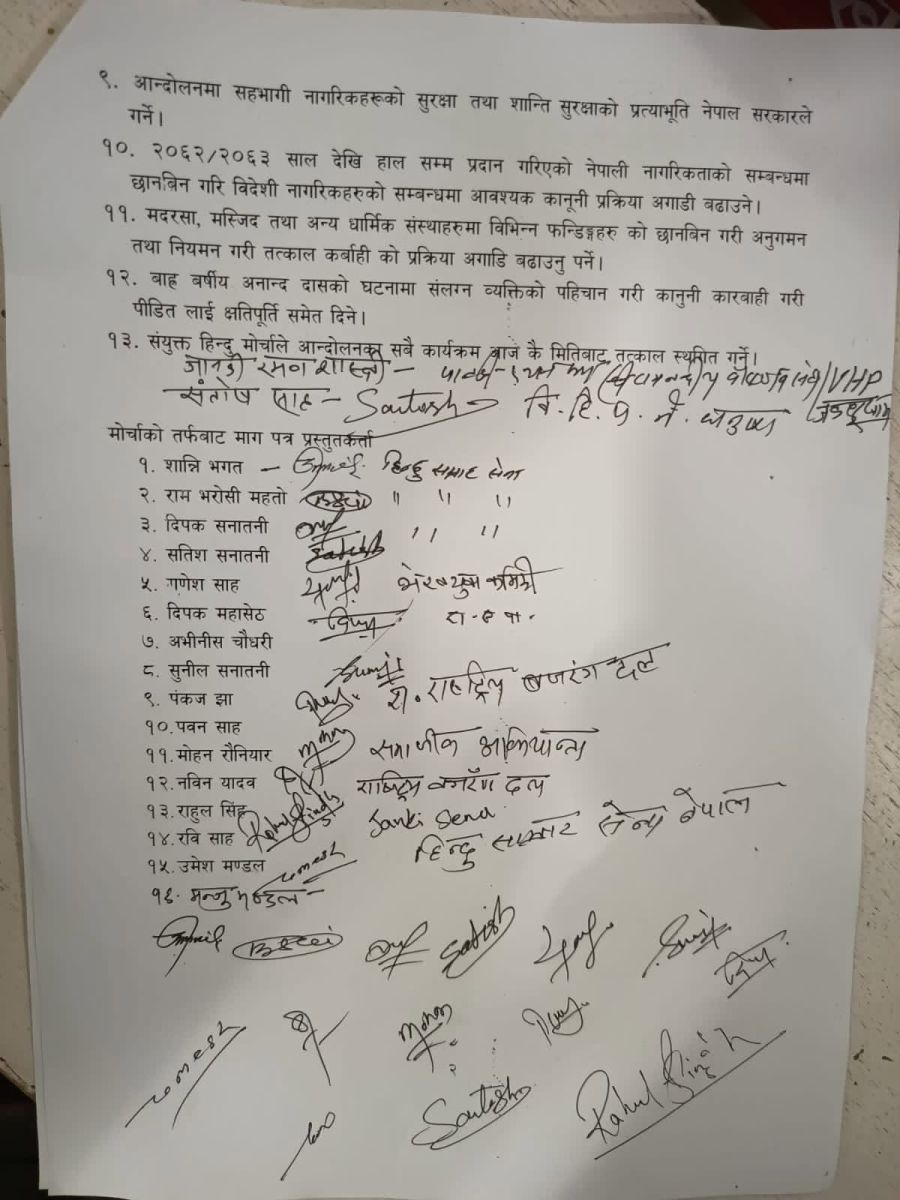 ९. आन्दोलनमा सहभागी नागरिकहरूको सुरक्षा तथा शान्ति सुरक्षाको प्रत्याभूति नेपाल सरकारले
गर्ने।
१०. २०६२/२०६३ साल देखि हाल सम्म प्रदान गरिएको नेपाली नागरिकताको सम्बन्धमा
छानबिन गरि विदेशी नागरिकहरुको सम्बन्धमा आवश्यक कानूनी प्रक्रिया अगाडी बढाउने।
११. मदरसा, मस्जिद तथा अन्य धार्मिक संस्थाहरुमा विभिन्न फन्डिङ्गहरु को छानबिन गरी अनुगमन
तथा नियमन गरी तत्काल कर्बाही को प्रक्रिया अगाडि बढाउनु पर्ने।
१२. बाह्र बर्षीय अनान्द दासको घटनामा संलग्न व्यक्तिको पहिचान गरी कानुनी कारबाही गरी
पीडित लाई क्षतिपूर्ति समेत दिने।
१३. संयुक्त हिन्दु मोर्चाले आन्दोलनका सबै कार्यक्रम आज कै मितिबाट तत्काल स्थगित गर्ने।
जानकी रमण शास्त्री - VHP
संतोष साह - Santosh वि. हि. प. ने. धनुषा
मोर्चाको तर्फबाट माग पत्र प्रस्तुतकर्ता
१. शान्नि भगत - हिन्दु सम्राट सेना
२. राम भरोसी महतो " " "
३. दिपक सनातनी " "
४. सतिश सनातनी Satish
५. गणेश साह
६. दिपक महासेठ
७. अभीनीस चौधरी
८. सुनील सनातनी
९. पंकज झा रा. राष्ट्रिय बजरंग दल
१०. पवन साह
११. मोहन रौनियार Mohan
१२. नविन यादव राष्ट्रिय बजरंग दल
१३. राहुल सिंह Rahul Singh Janki Sena
१४. रवि साह हिन्दु सम्राट सेना नेपाल
१५. उमेश मण्डल Umesh
१६. मन्जु मण्डल -
Satish
Umesh Mohan
Santosh Rahul Singh